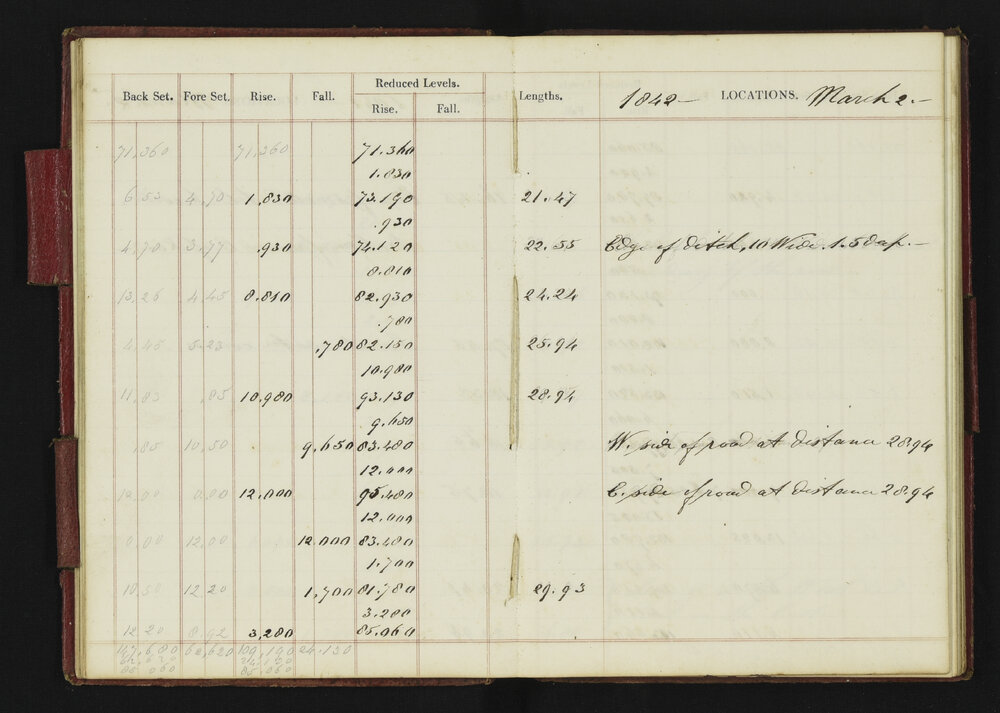 Reduced Levels.
Back Set. Fore Set. Rise. Fall. Rise. Fall. Lengths. 1842— LOCATIONS. March 2.—
71,360 71,360 71.360
1.830
6 53 4,70 1,830 73.190 21.47
.930
4,70 3,77 .930 74.120 22.55 Edge of ditch, 10 Wide. 1.5 deep.—
8.810
13,26 4 45 8.810 82.930 24.24
.780
4,45 5.23 .780 82.150 25.94
10.980
11,83 ,85 10.980 93.130 28.94
9.650
,85 10,50 9,650 83.480 W. side of road at distance 28.94
12.000
12,00 0,00 12,000 95.480 E. side of road at distance 28.94
12.000
0,00 12,00 12,000 83.480
1.700
10,50 12 20 1,700 81.780 29.93
3.280
12.20 8,92 3,280 85.060
147,680 62,620 109,190 24,130
62,620 24,130
85 060 85,060